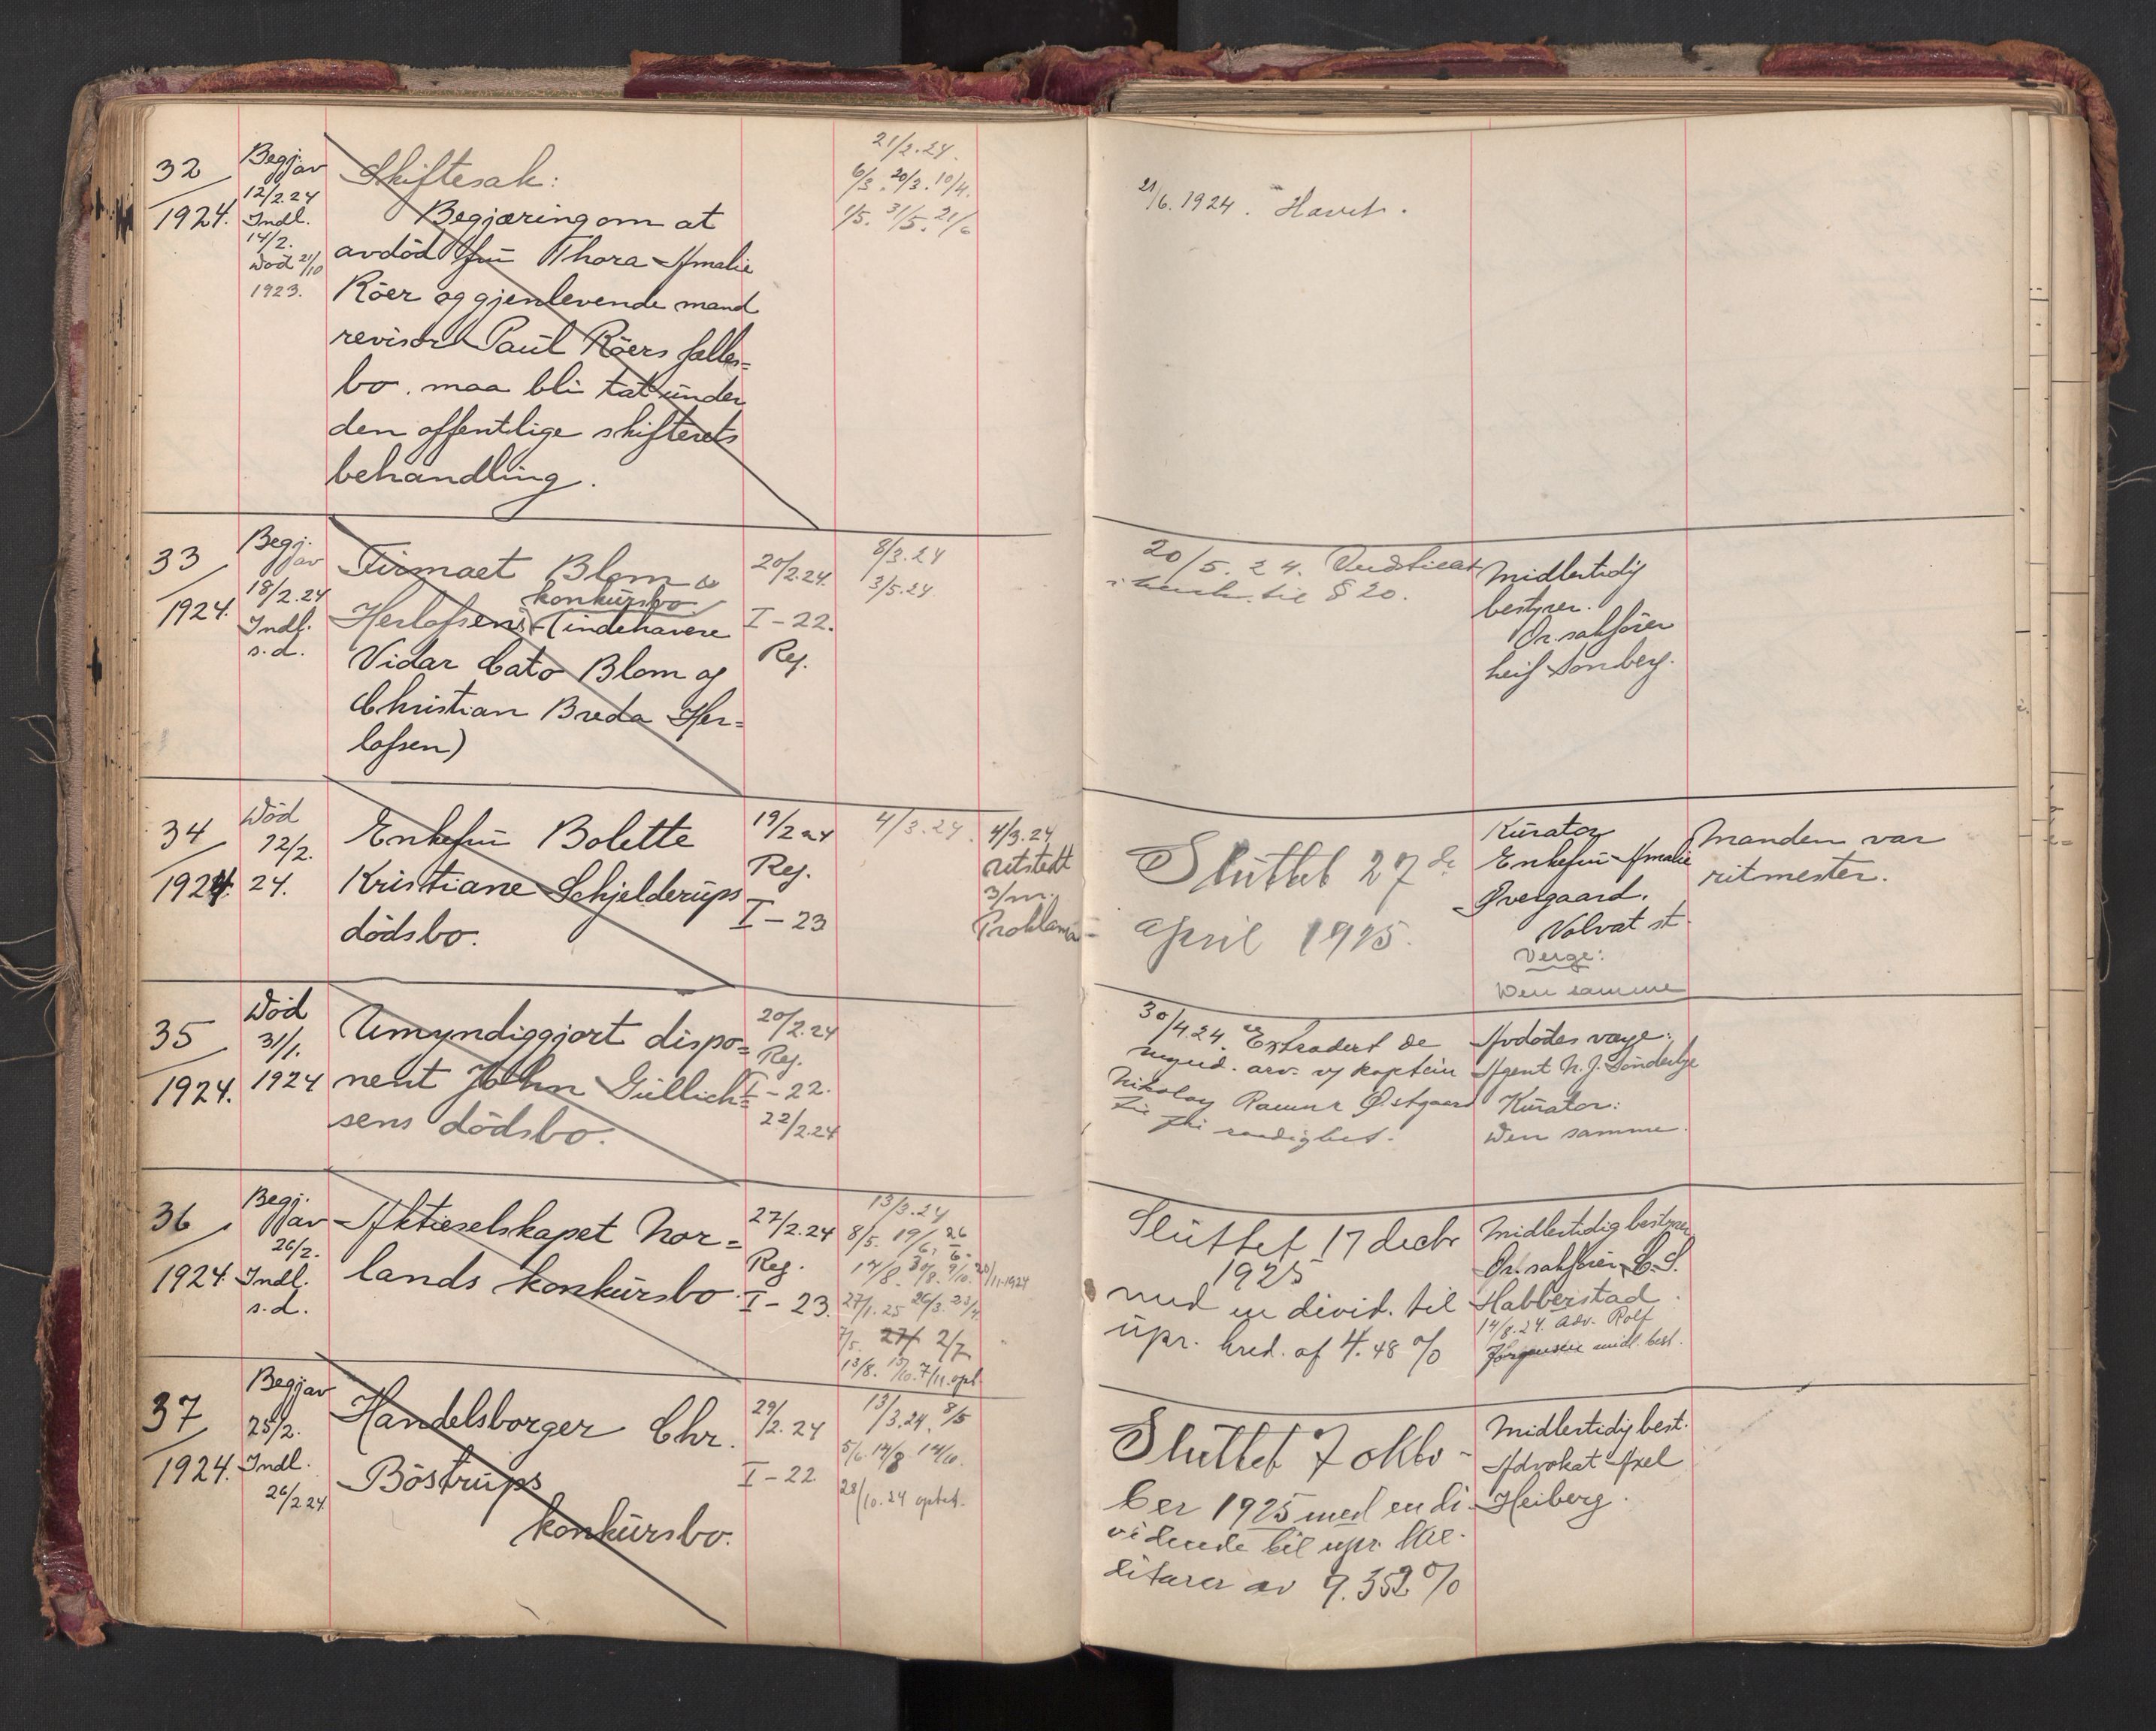 32
1924.
Begj. av
12/2.24
Indl.
14/2.
Död 21/10
1923.
Skiftesak:
Begjæring om at
avdöd fru Thora Amalie
Röer og gjenlevende mand
revisor Paul Röers fælles=
bo. maa bli tat under
den offentlige skifterets
behandling.
21/2.24.
6/3. 20/3. 10/4.
1/5. 31/5. 21/6
21/6. 1924. Hævet.
33
1924.
Begj. av
18/2.24
Indl.
s.d.
Firmaet Blom &
konkursbo
Herlofsens (indehavere
Vidar Cato Blom og
Christian Breda Her=
lofsen)
20/2.24.
I-22.
Reg.
8/3.24
3/5.24
20/5.24. Indstillet
i henh. til § 20.
Midlertidig
bestyrer.
Or. sakfører
Leif
34
1924.
Död
12/2.
24.
Enkefru Bolette
Kristiane Schjelderups
dödsbo.
19/2 24
Reg.
I-23
4/3.24.
4/3.24
utstedt
3/m.
Proklama
Sluttet 27de
april 1925.
Kurator
Enkefru Amalie
Øvergaard.
Volvat st.
Verge:
Den samme
Manden var
ritmester.
35
1924.
Död
31/1.
1924
Umyndiggjort dispo=
nent John Gullich=
sens dödsbo.
20/2.24
Reg.
I-22.
22/2.24
30/4.24. Extradert de
mynd. arv. v/ kaptein
Nikolay Østgaard
til fri raadighet.
Avdödes verge:
Agent N. J.
Kurator:
Den samme.
36
1924.
Begj. av
26/2.
Indl.
s.d.
Aktieselskapet Nor=
lands konkursbo.
27/2.24
Reg.
I-23.
13/3.24
8/5. 19/6. 26/6.
14/8. 9/10. 20/11.1924
27/1.25 26/3. 23/4.
7/5. 2/7
13/8. 15/10. 7/11. opt.
Sluttet 17 decbr
1925
med en divid. til
upr. kred. af 4.48 %
Midlertidig bestyrer
Or. sakfører C. S.
Habberstad.
14/8.24. adv. Rolf
Jørgensen midl. best.
37
1924.
Begj av
25/2.
Indl.
26/2 24.
Handelsborger Chr.
Böstrups
konkursbo.
29/2.24
I-22
13/3.24. 8/5
5/6. 14/8. 14/10.
28/10.24 optat.
Sluttet 7 okto-
ber 1925 med en di-
vidende til upr. kre-
ditorer av 9.352 %
Midlertidig best.
Advokat Axel
Heiberg.